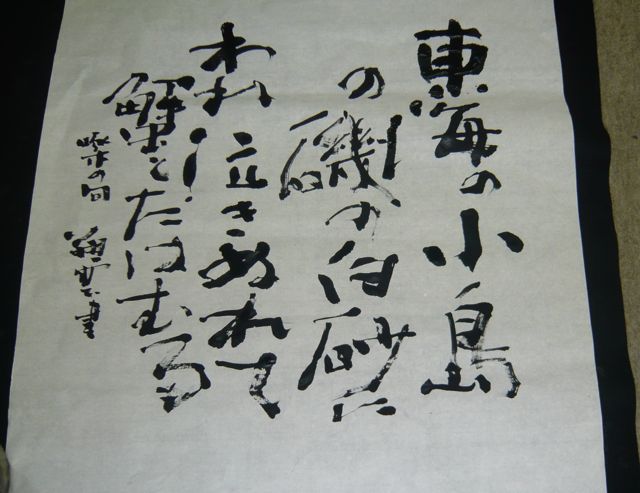 東海の小島
の磯の白砂に
われ泣きぬれて
蟹とたはむる
啄木の句 書